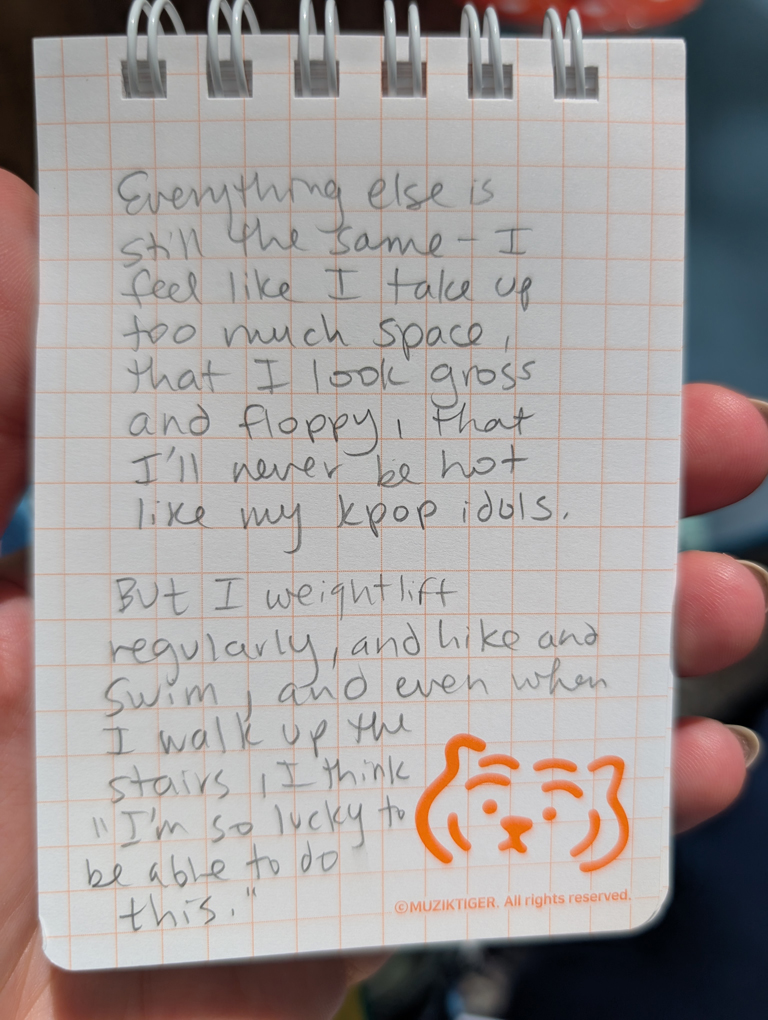 Everything else is
still the same - I
feel like I take up
too much space,
that I look gross
and floppy, that
I'll never be hot
like my kpop idols.
But I weightlift
regularly, and hike and
swim, and even when
I walk up the
stairs, I think
"I'm so lucky to
be able to do
this."
©MUZIKTIGER. All rights reserved.